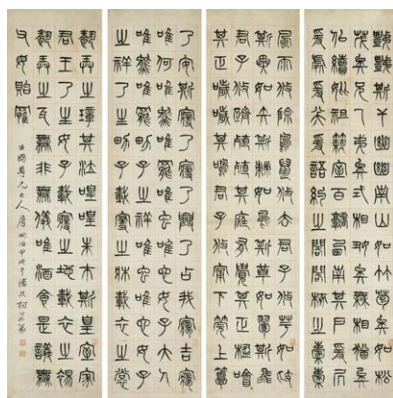 秩秩斯干幽幽南山如竹苞矣如松
茂矣兄及弟矣式相好矣無相猶矣
佀續妣祖築室百堵西南其戶爰居
爰處爰笑爰語約之閣閣椓之橐橐
風雨攸除鳥鼠攸去君子攸芋如跂
斯翼如矢斯棘如鳥斯革如翬斯飛
君子攸躋殖殖其庭有覺其楹噲噲
其正噦噦其冥君子攸寧下莞上簟
乃安斯寢乃寢乃興乃占我夢吉夢
唯何唯熊唯羆唯虺唯它大人占之
唯熊唯羆男子之祥唯虺唯它女子
之祥乃生男子載寢之牀載衣之裳
載弄之璋其泣喤喤朱芾斯皇室家
君王乃生女子載寢之地載衣之裼
載弄之瓦無非無儀唯酒食是議無
父母貽罹